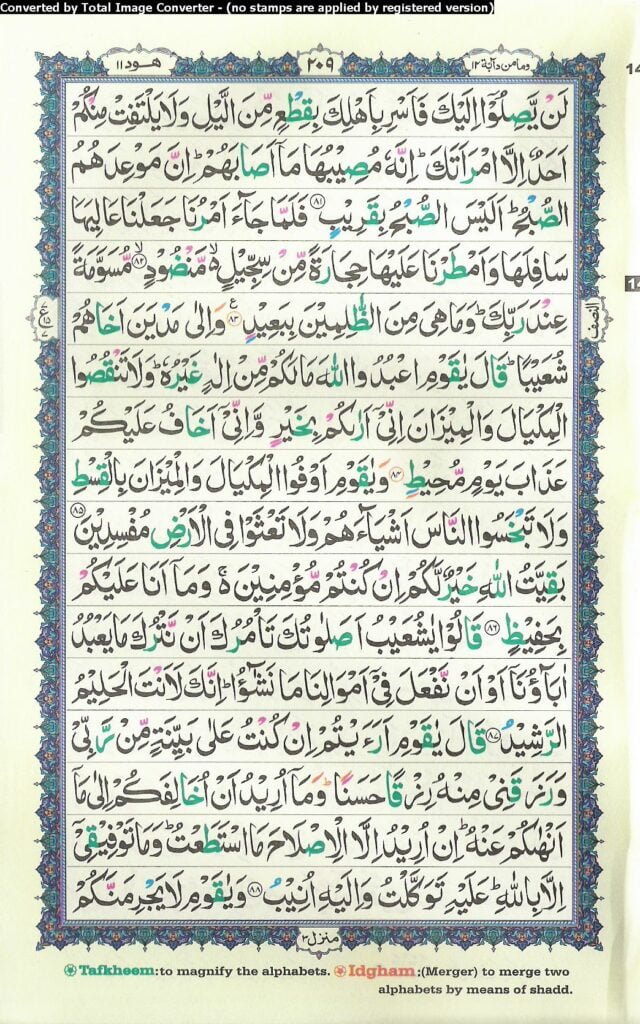 Converted by Total Image Converter - (no stamps are applied by registered version)
وما من دآبة ١٢
٢٠٩
هود ١١
لَنْ يَّصِلُوْۤا اِلَيْكَ فَاَسْرِ بِاَهْلِكَ بِقِطْعٍ مِّنَ الَّيْلِ وَلَا يَلْتَفِتْ مِنْكُمْ
اَحَدٌ اِلَّا امْرَاَتَكَ ؕ اِنَّهٗ مُصِيْبُهَا مَاۤ اَصَابَهُمْ ؕ اِنَّ مَوْعِدَهُمُ
الصُّبْحُ ؕ اَلَيْسَ الصُّبْحُ بِقَرِيْبٍ ﴿٨١﴾ فَلَمَّا جَآءَ اَمْرُنَا جَعَلْنَا عَالِيَهَا
سَافِلَهَا وَاَمْطَرْنَا عَلَيْهَا حِجَارَةً مِّنْ سِجِّيْلٍ ۙ مَّنْضُوْدٍ ۙ﴿٨٢﴾ مُّسَوَّمَةً
عِنْدَ رَبِّكَ ؕ وَمَا هِيَ مِنَ الظّٰلِمِيْنَ بِبَعِيْدٍ ﴿٨٣﴾ع وَاِلٰى مَدْيَنَ اَخَاهُمْ
شُعَيْبًا ؕ قَالَ يٰقَوْمِ اعْبُدُوا اللّٰهَ مَا لَكُمْ مِّنْ اِلٰهٍ غَيْرُهٗ ؕ وَلَا تَنْقُصُوا
الْمِكْيَالَ وَالْمِيْزَانَ اِنِّيْۤ اَرٰىكُمْ بِخَيْرٍ وَّاِنِّيْۤ اَخَافُ عَلَيْكُمْ
عَذَابَ يَوْمٍ مُّحِيْطٍ ﴿٨٤﴾ وَيٰقَوْمِ اَوْفُوا الْمِكْيَالَ وَالْمِيْزَانَ بِالْقِسْطِ
وَلَا تَبْخَسُوا النَّاسَ اَشْيَآءَهُمْ وَلَا تَعْثَوْا فِى الْاَرْضِ مُفْسِدِيْنَ ﴿٨٥﴾
بَقِيَّتُ اللّٰهِ خَيْرٌ لَّكُمْ اِنْ كُنْتُمْ مُّؤْمِنِيْنَ ۚ وَمَاۤ اَنَا عَلَيْكُمْ
بِحَفِيْظٍ ﴿٨٦﴾ قَالُوْا يٰشُعَيْبُ اَصَلٰوتُكَ تَاْمُرُكَ اَنْ نَّتْرُكَ مَا يَعْبُدُ
اٰبَآؤُنَاۤ اَوْ اَنْ نَّفْعَلَ فِيْۤ اَمْوَالِنَا مَا نَشٰٓؤُا ؕ اِنَّكَ لَاَنْتَ الْحَلِيْمُ
الرَّشِيْدُ ﴿٨٧﴾ قَالَ يٰقَوْمِ اَرَءَيْتُمْ اِنْ كُنْتُ عَلٰى بَيِّنَةٍ مِّنْ رَّبِّيْ
وَرَزَقَنِيْ مِنْهُ رِزْقًا حَسَنًا ؕ وَمَاۤ اُرِيْدُ اَنْ اُخَالِفَكُمْ اِلٰى مَاۤ
اَنْهٰىكُمْ عَنْهُ ؕ اِنْ اُرِيْدُ اِلَّا الْاِصْلَاحَ مَا اسْتَطَعْتُ ؕ وَمَا تَوْفِيْقِيْۤ
اِلَّا بِاللّٰهِ ؕ عَلَيْهِ تَوَكَّلْتُ وَاِلَيْهِ اُنِيْبُ ﴿٨٨﴾ وَيٰقَوْمِ لَا يَجْرِمَنَّكُمْ
النصف
منزل ٣
Tafkheem:to magnify the alphabets. Idgham:(Merger) to merge two
alphabets by means of shadd.